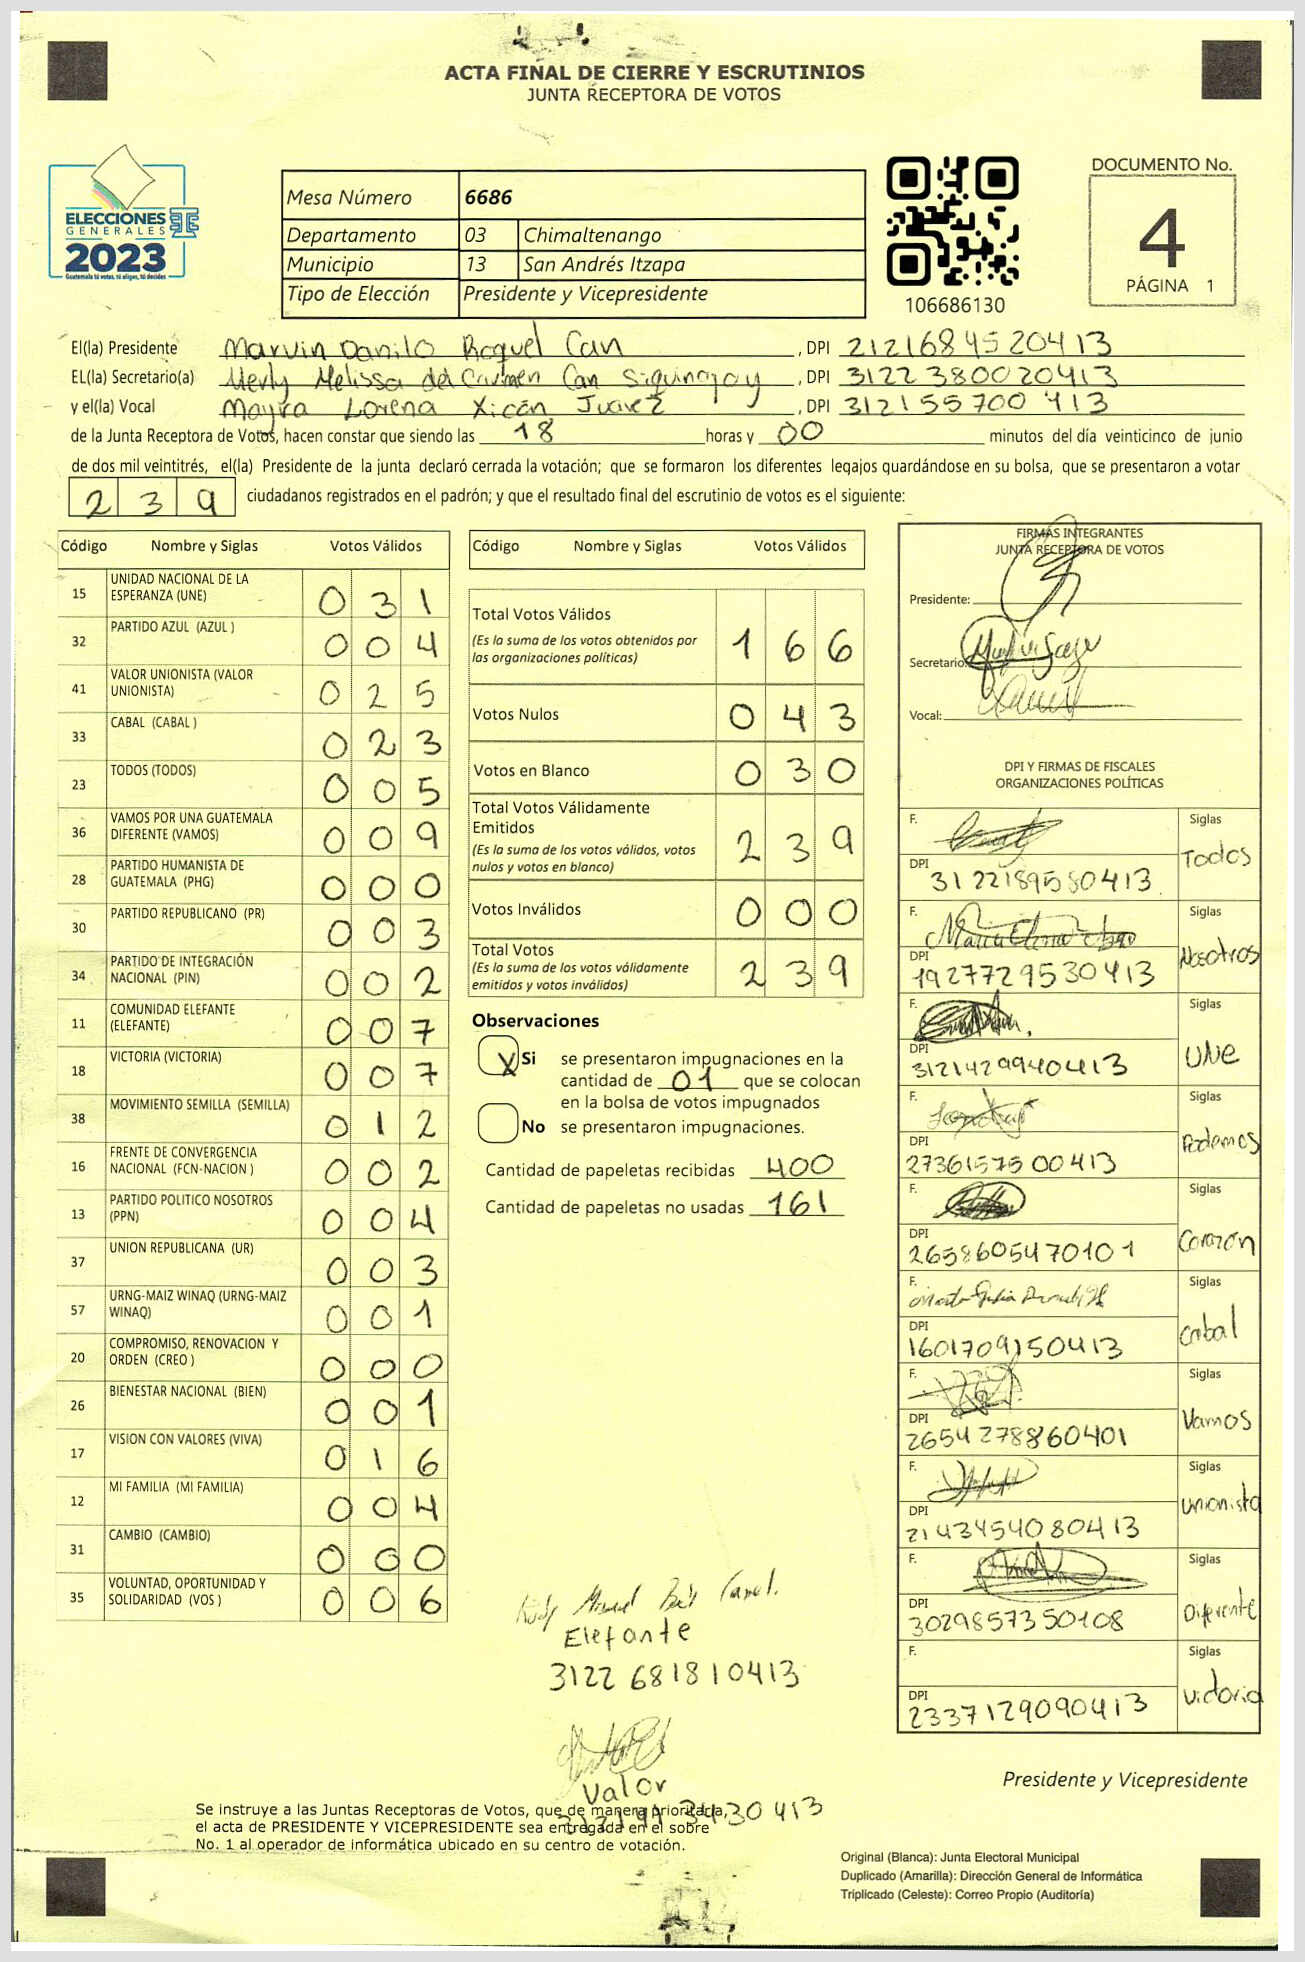 ACTA FINAL DE CIERRE Y ESCRUTINIOS
JUNTA RECEPTORA DE VOTOS
ELECCIONES
GENERALES
2023
Guatemala tú votas, tú eliges, tú decides
Mesa Número 6686
Departamento 03 Chimaltenango
Municipio 13 San Andrés Itzapa
Tipo de Elección Presidente y Vicepresidente
106686130
DOCUMENTO No.
4
PÁGINA 1
El(la) Presidente Marvin Danilo Roquel Can , DPI 2121684520413
EL(la) Secretario(a) Merly Melissa del Carmen Can Siquinajay , DPI 3122380020413
y el(la) Vocal Mayra Lorena Xicón Juarez , DPI 312155700 413
de la Junta Receptora de Votos, hacen constar que siendo las 18 horas y 00 minutos del día veinticinco de junio
de dos mil veintitrés, el(la) Presidente de la junta declaró cerrada la votación; que se formaron los diferentes legajos guardándose en su bolsa, que se presentaron a votar
239 ciudadanos registrados en el padrón; y que el resultado final del escrutinio de votos es el siguiente:
Código Nombre y Siglas Votos Válidos
15 UNIDAD NACIONAL DE LA
ESPERANZA (UNE) 031
32 PARTIDO AZUL (AZUL ) 004
41 VALOR UNIONISTA (VALOR
UNIONISTA) 025
33 CABAL (CABAL ) 023
23 TODOS (TODOS) 005
36 VAMOS POR UNA GUATEMALA
DIFERENTE (VAMOS) 009
28 PARTIDO HUMANISTA DE
GUATEMALA (PHG) 000
30 PARTIDO REPUBLICANO (PR) 003
34 PARTIDO DE INTEGRACIÓN
NACIONAL (PIN) 002
11 COMUNIDAD ELEFANTE
(ELEFANTE) 007
18 VICTORIA (VICTORIA) 007
38 MOVIMIENTO SEMILLA (SEMILLA) 012
16 FRENTE DE CONVERGENCIA
NACIONAL (FCN-NACION ) 002
13 PARTIDO POLITICO NOSOTROS
(PPN) 004
37 UNION REPUBLICANA (UR) 003
57 URNG-MAIZ WINAQ (URNG-MAIZ
WINAQ) 001
20 COMPROMISO, RENOVACION Y
ORDEN (CREO ) 000
26 BIENESTAR NACIONAL (BIEN) 001
17 VISION CON VALORES (VIVA) 016
12 MI FAMILIA (MI FAMILIA) 004
31 CAMBIO (CAMBIO) 000
35 VOLUNTAD, OPORTUNIDAD Y
SOLIDARIDAD (VOS ) 006
Código Nombre y Siglas Votos Válidos
Total Votos Válidos 166
(Es la suma de los votos obtenidos por
las organizaciones políticas)
Votos Nulos 043
Votos en Blanco 030
Total Votos Válidamente
Emitidos 239
(Es la suma de los votos válidos, votos
nulos y votos en blanco)
Votos Inválidos 000
Total Votos 239
(Es la suma de los votos válidamente
emitidos y votos inválidos)
Observaciones
X Si se presentaron impugnaciones en la
cantidad de 01 que se colocan
en la bolsa de votos impugnados
No se presentaron impugnaciones.
Cantidad de papeletas recibidas 400
Cantidad de papeletas no usadas 161
Elefante
3122 681810413
Valor
FIRMAS INTEGRANTES
JUNTA RECEPTORA DE VOTOS
Presidente:
Secretario
Vocal:
DPI Y FIRMAS DE FISCALES
ORGANIZACIONES POLÍTICAS
F. Siglas
Todos
DPI 3122189580413
F. Siglas
Nosotros
DPI 1927729530413
F. Siglas
UNE
DPI 3121429940413
F. Siglas
Podemos
DPI 2736157500413
F. Siglas
Corazón
DPI 2658605470101
F. Siglas
Cabal
DPI 1601709150413
F. Siglas
Vamos
DPI 2654278860401
F. Siglas
Unionista
DPI 2143454080413
F. Siglas
Diferente
DPI 3029857350108
F. Siglas
Victoria
DPI 2337129090413
Presidente y Vicepresidente
Se instruye a las Juntas Receptoras de Votos, que de manera prioritaria,
el acta de PRESIDENTE Y VICEPRESIDENTE sea entregada en el sobre
No. 1 al operador de informática ubicado en su centro de votación.
Original (Blanca): Junta Electoral Municipal
Duplicado (Amarilla): Dirección General de Informática
Triplicado (Celeste): Correo Propio (Auditoría)